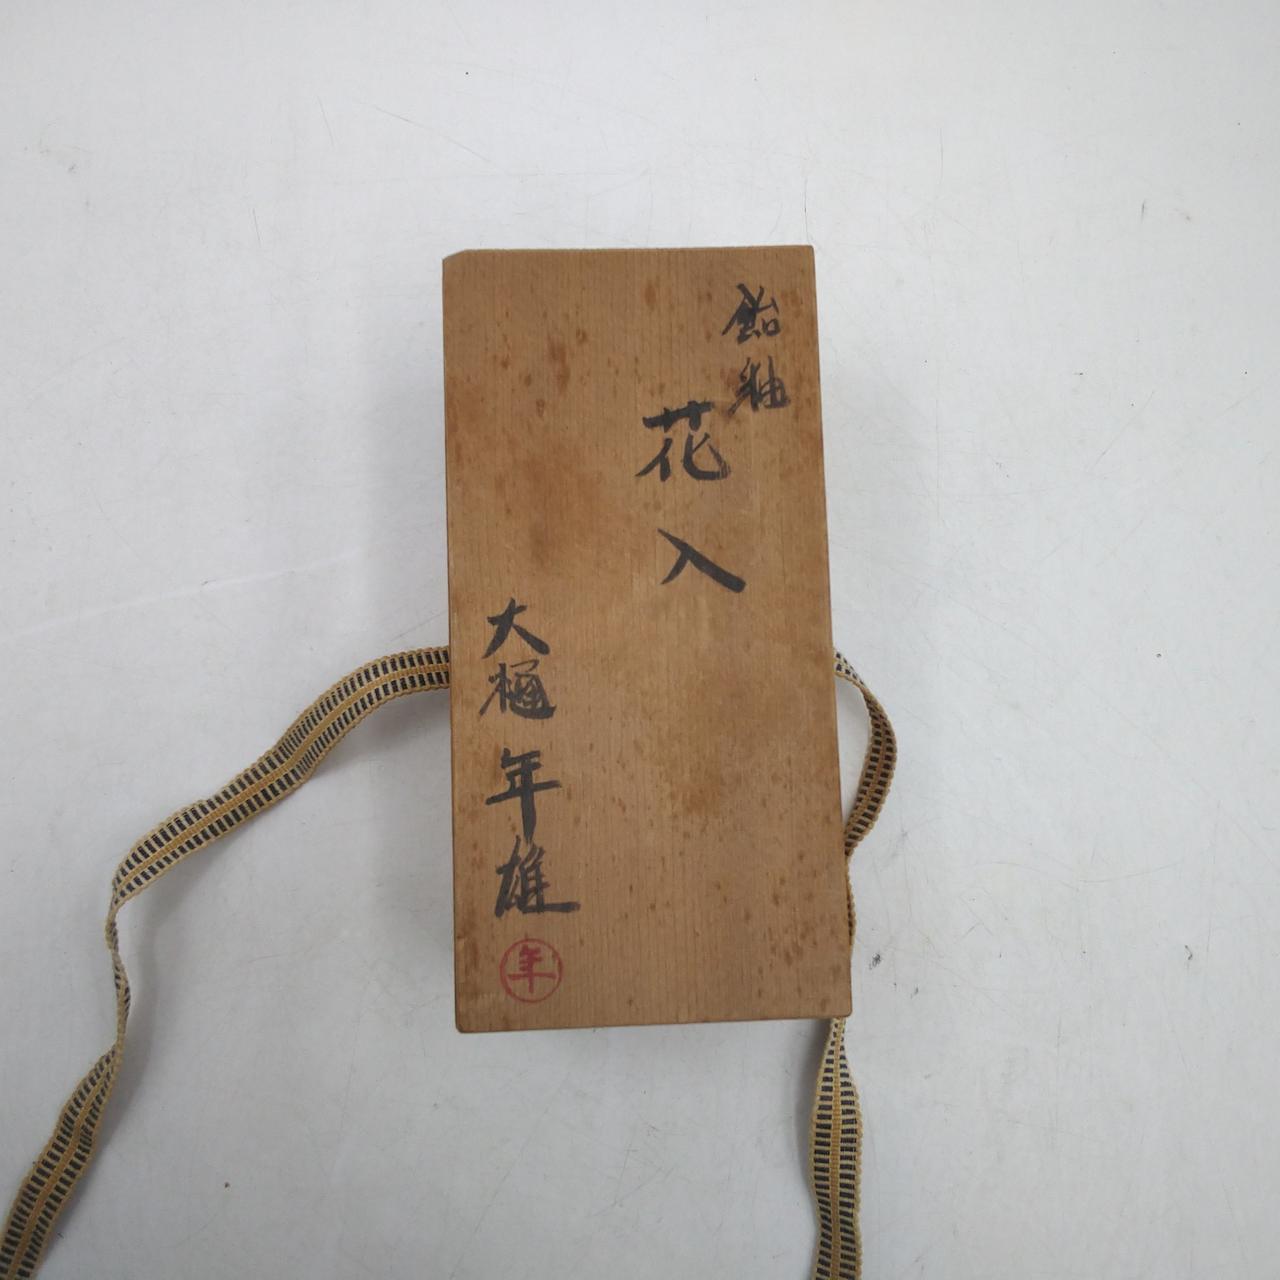 飴釉
花入
大樋年雄
年